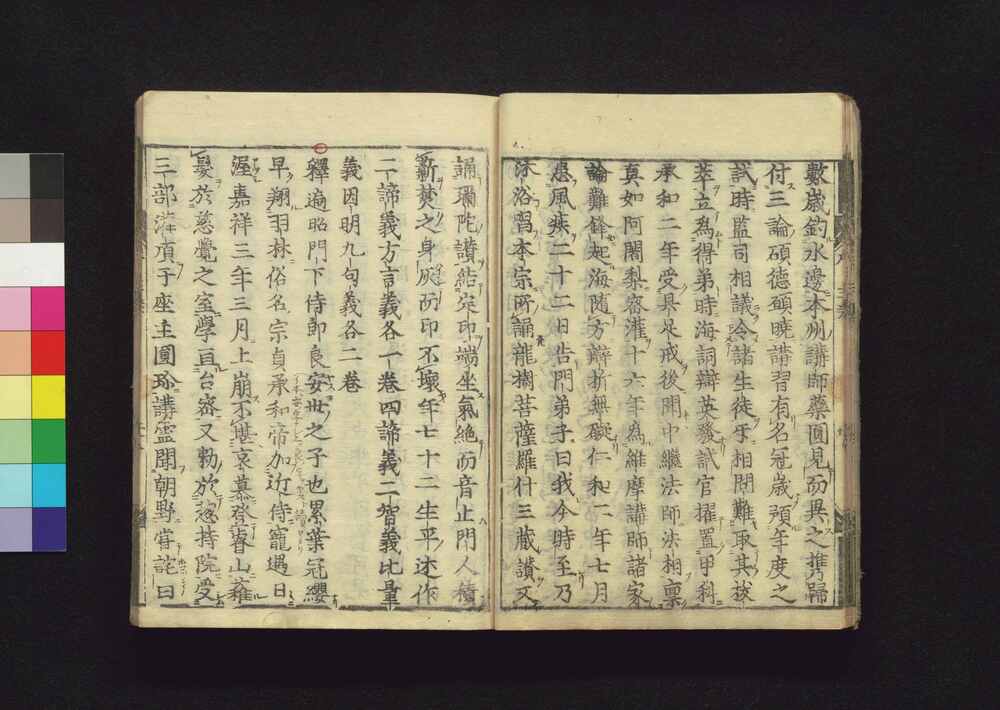 數歲釣水邊本州講師藥圓見而異之攜歸
付三論碩德碩曉講習有名冠歲預年度之
試時監司相議令諸生徒互相問難取其拔
萃立爲得第時海詞辯英發試官擢置甲科
承和二年受具足戒後聞中繼法師法相稟
真如阿闍梨密灌十六年爲維摩講師諸家
論難鋒起海隨方辯折無礙仁和二年七月
患風疾二十二日告門弟子曰我今時至乃
沐浴習本宗所誦龍樹菩薩羅什三藏讚又
誦彌陀讚結定印端坐氣絕而音止門人積
薪焚之身灰而印不壞年七十二生平述作
二諦義方言義各一卷四諦義二智義比量
義因明九句義各二卷
釋遍昭門下侍郎良安世之子也累葉冠纓
早翔羽林俗名宗貞承和帝加近侍寵遇日
渥嘉祥三年三月上崩不堪哀慕登睿山薙
髮於慈覺之室學亘台密又勑於惣持院受
三部灌頂于座主圓珍講靈聞朝野嘗詫曰